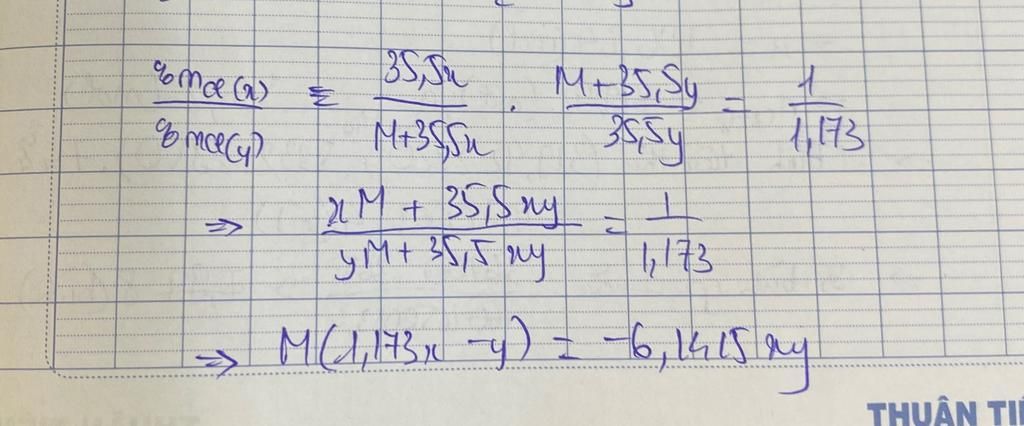 %mCl(x) / %mCl(y) = 35,5x / (M+35,5x) . (M+35,5y) / 35,5y = 1 / 1,173
=> (xM + 35,5xy) / (yM + 35,5xy) = 1 / 1,173
=> M(1,173x - y) = -6,1415xy
THUẬN TIẾ